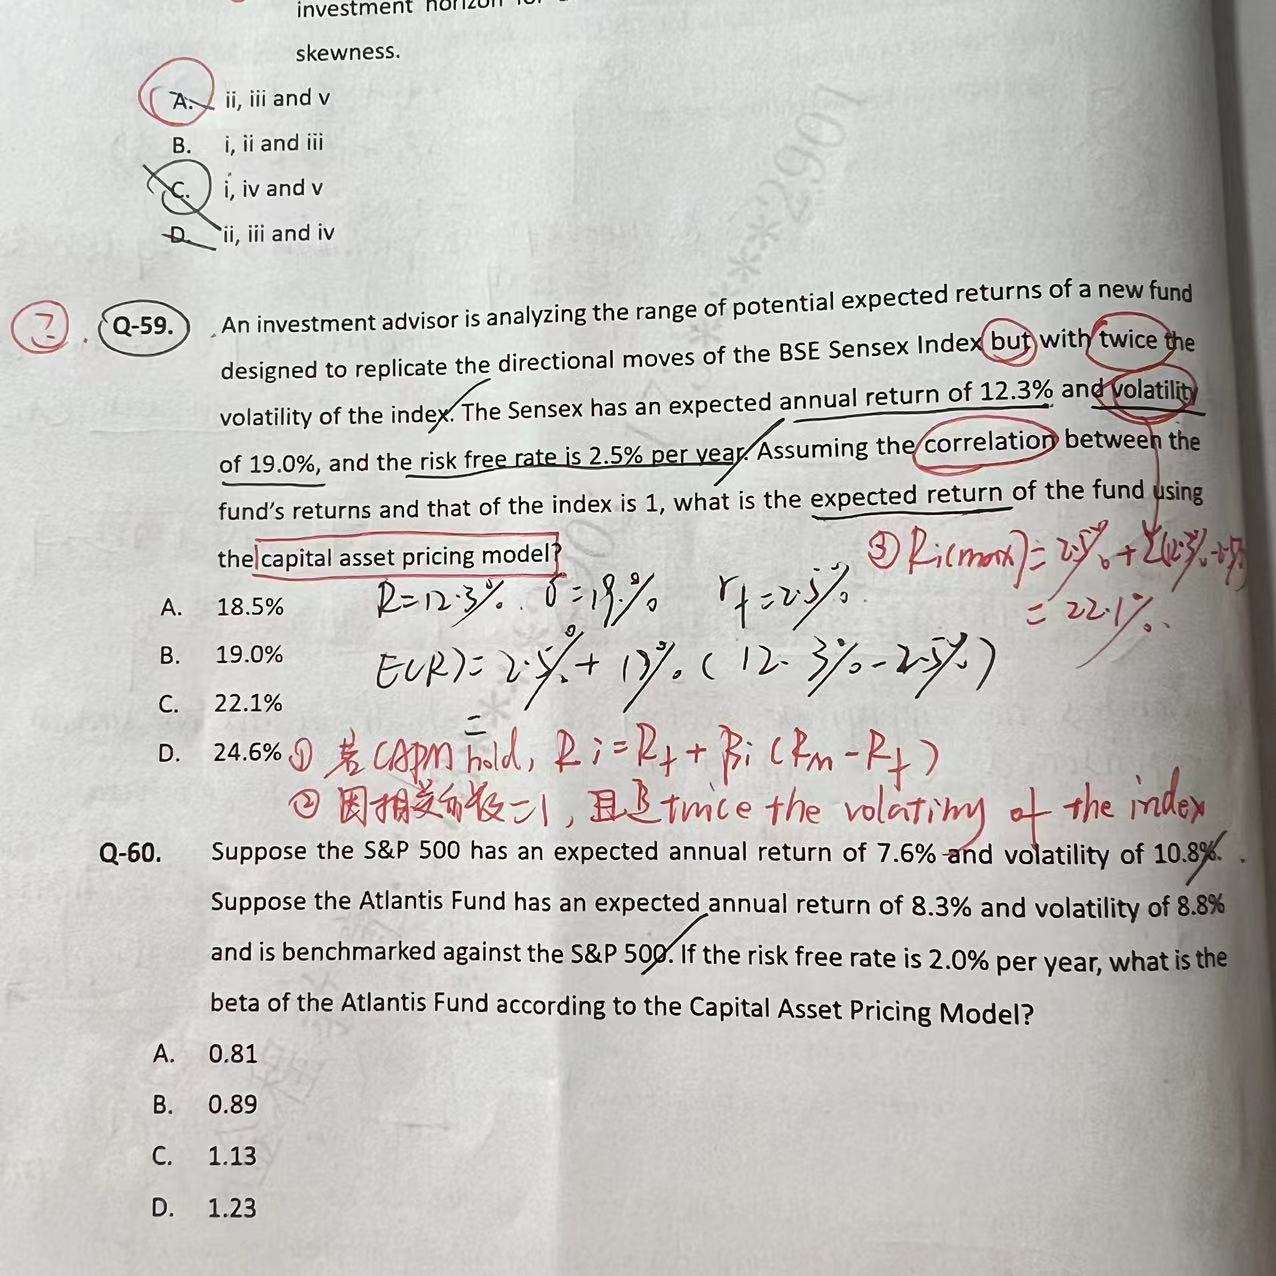 investment horizon for
skewness.
A. ii, iii and v
B. i, ii and iii
C. i, iv and v
D. ii, iii and iv
?. Q-59. An investment advisor is analyzing the range of potential expected returns of a new fund
designed to replicate the directional moves of the BSE Sensex Index but with twice the
volatility of the index. The Sensex has an expected annual return of 12.3% and volatility
of 19.0%, and the risk free rate is 2.5% per year. Assuming the correlation between the
fund's returns and that of the index is 1, what is the expected return of the fund using
the capital asset pricing model?
③ Ri(max) = 2.5% + 2(12.3%-2.5%)
= 22.1%.
A. 18.5%
R=12.3%. σ=19.% rf=2.5%
B. 19.0%
E(R)= 2.5% + 19%. ( 12.3% - 2.5%)
=
C. 22.1%
D. 24.6%
① 若 CAPM hold, Ri = Rf + βi (Rm - Rf)
② 因相关系数=1, 且是 twice the volatility of the index
Q-60. Suppose the S&P 500 has an expected annual return of 7.6% and volatility of 10.8%.
Suppose the Atlantis Fund has an expected annual return of 8.3% and volatility of 8.8%
and is benchmarked against the S&P 500. If the risk free rate is 2.0% per year, what is the
beta of the Atlantis Fund according to the Capital Asset Pricing Model?
A. 0.81
B. 0.89
C. 1.13
D. 1.23